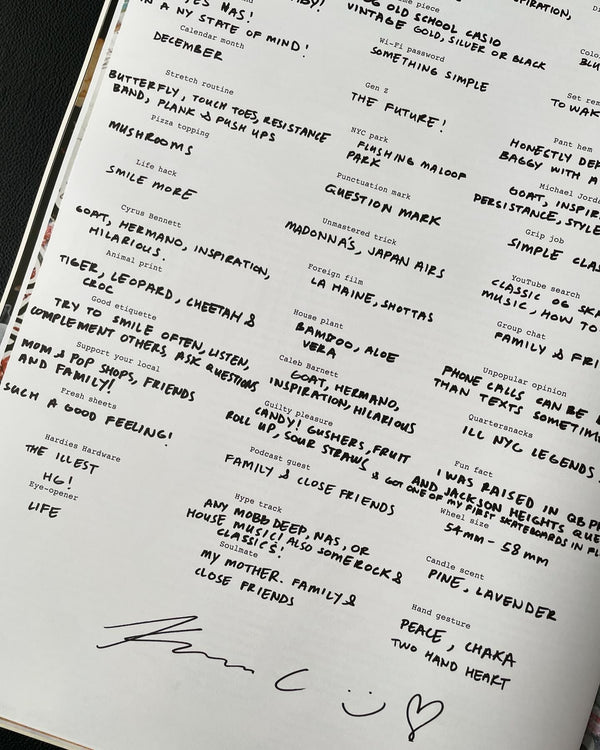 YES NAS!
IN A NY STATE OF MIND!
Calendar month
DECEMBER
Stretch routine
BUTTERFLY, TOUCH TOES, RESISTANCE
BAND, PLANK & PUSH UPS
Pizza topping
MUSHROOMS
Life hack
SMILE MORE
Cyrus Bennett
GOAT, HERMANO, INSPIRATION,
HILARIOUS.
Animal print
TIGER, LEOPARD, CHEETAH &
CROC
Good etiquette
TRY TO SMILE OFTEN, LISTEN,
COMPLEMENT OTHERS, ASK QUESTIONS
Support your local
MOM & POP SHOPS, FRIENDS
AND FAMILY!
Fresh sheets
SUCH A GOOD FEELING!
Hardies Hardware
THE ILLEST
HG!
Eye-opener
LIFE
OG OLD SCHOOL CASIO
VINTAGE GOLD, SILVER OR BLACK
Wi-Fi password
SOMETHING SIMPLE
Gen Z
THE FUTURE!
NYC park
FLUSHING MALOOF
PARK
Punctuation mark
QUESTION MARK
Unmastered trick
MADONNA'S, JAPAN AIRS
Foreign film
LA HAINE, SHOTTAS
House plant
BAMBOO, ALOE
VERA
Caleb Barnett
GOAT, HERMANO,
INSPIRATION, HILARIOUS
Guilty pleasure
CANDY! GUSHERS, FRUIT
ROLL UP, SOUR STRAWS
Podcast guest
FAMILY & CLOSE FRIENDS
Hype track
ANY MOBB DEEP, NAS, OR
HOUSE MUSIC! ALSO SOME ROCK &
CLASSICS!
Soulmate
MY MOTHER. FAMILY &
CLOSE FRIENDS
INSPIRATION,
Set
TO
Pant hem
HONESTLY
BAGGY WITH A
Michael
GOAT,
PERSISTANCE, STYLE
Grip job
SIMPLE
YouTube search
CLASSIC OG
MUSIC, HOW TO
Group chat
FAMILY &
Unpopular opinion
PHONE CALLS CAN BE
THAN TEXTS
Quartersnacks
ILL NYC LEGENDS
Fun fact
I WAS RAISED IN QB
AND JACKSON HEIGHTS
& GOT ONE OF MY FIRST SKATEBOARDS IN
Wheel size
54mm - 58mm
Candle scent
PINE, LAVENDER
Hand gesture
PEACE, CHAKA
TWO HAND HEART